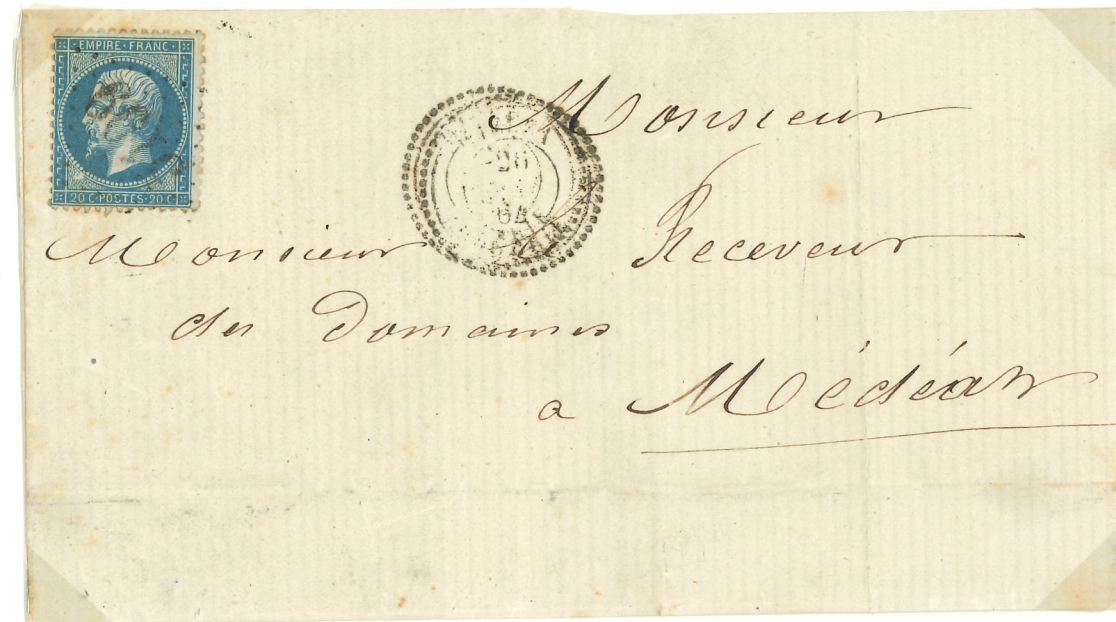 EMPIRE · FRANC ·
20 C · POSTES · 20 C ·
26
64
Monsieur
Monsieur Receveur
des Domaines
a Médéah